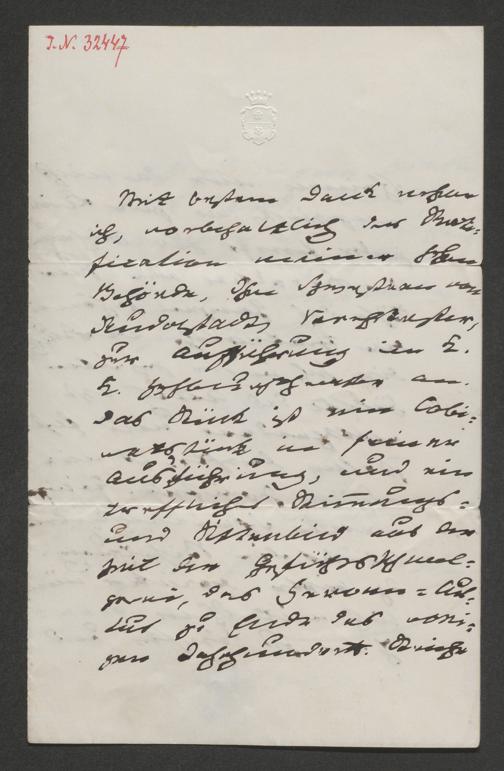 I. N. 32447
Mit bestem Dank nehme
ich, vorbehaltlich der Rati-
fication meiner hohen
Behörde, Ihr von
Rudolstadt, Verehrtester,
zur Aufführung im k.
k. an.
Das Stück ist ein Cabi-
netsstück in feiner
Ausführung, und ein
treffliches Stimmungs-
und Sittenbild aus der
Zeit der Gefühlsschwel-
gerei, des Heroen-Cul-
tus zu Ende des vori-
gen Jahrhunderts.